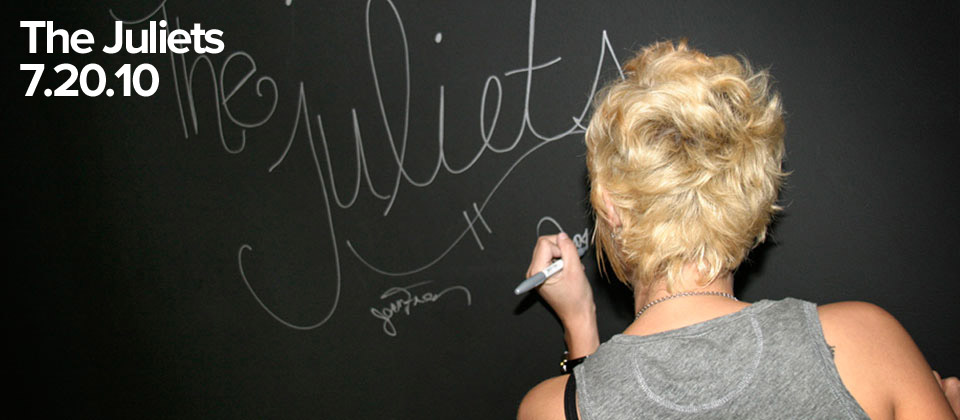 The Juliets
7.20.10
The
Juliets